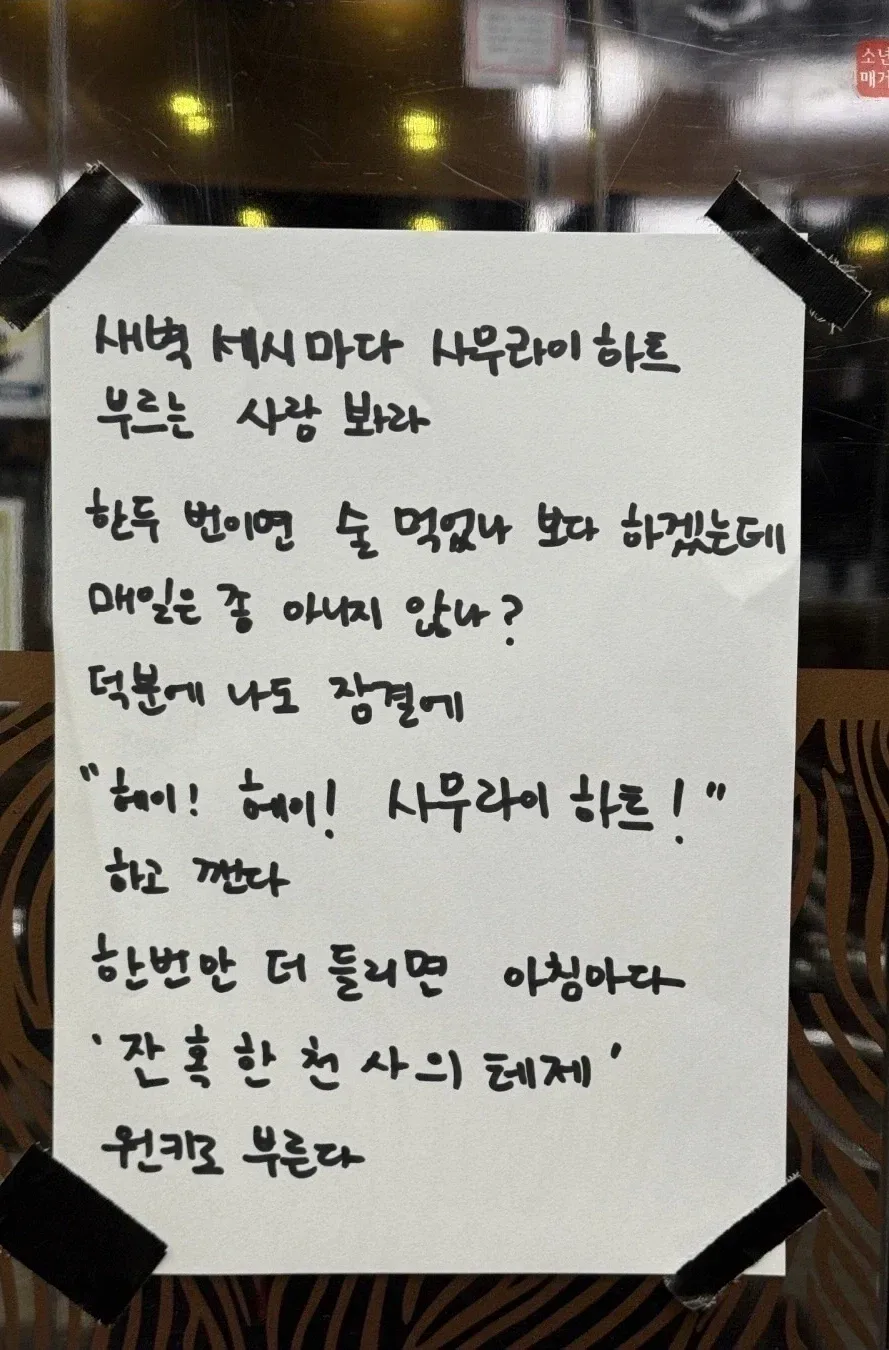 소년
매거
새벽 세시마다 사무라이 하트
부르는 사람 봐라
한두 번이면 술 먹었나 보다 하겠는데
매일은 좀 아니지 않나?
덕분에 나도 잠결에
"헤이! 헤이! 사무라이 하트!"
하고 깬다
한번만 더 들리면 아침마다
'잔혹한 천사의 테제'
원키로 부른다